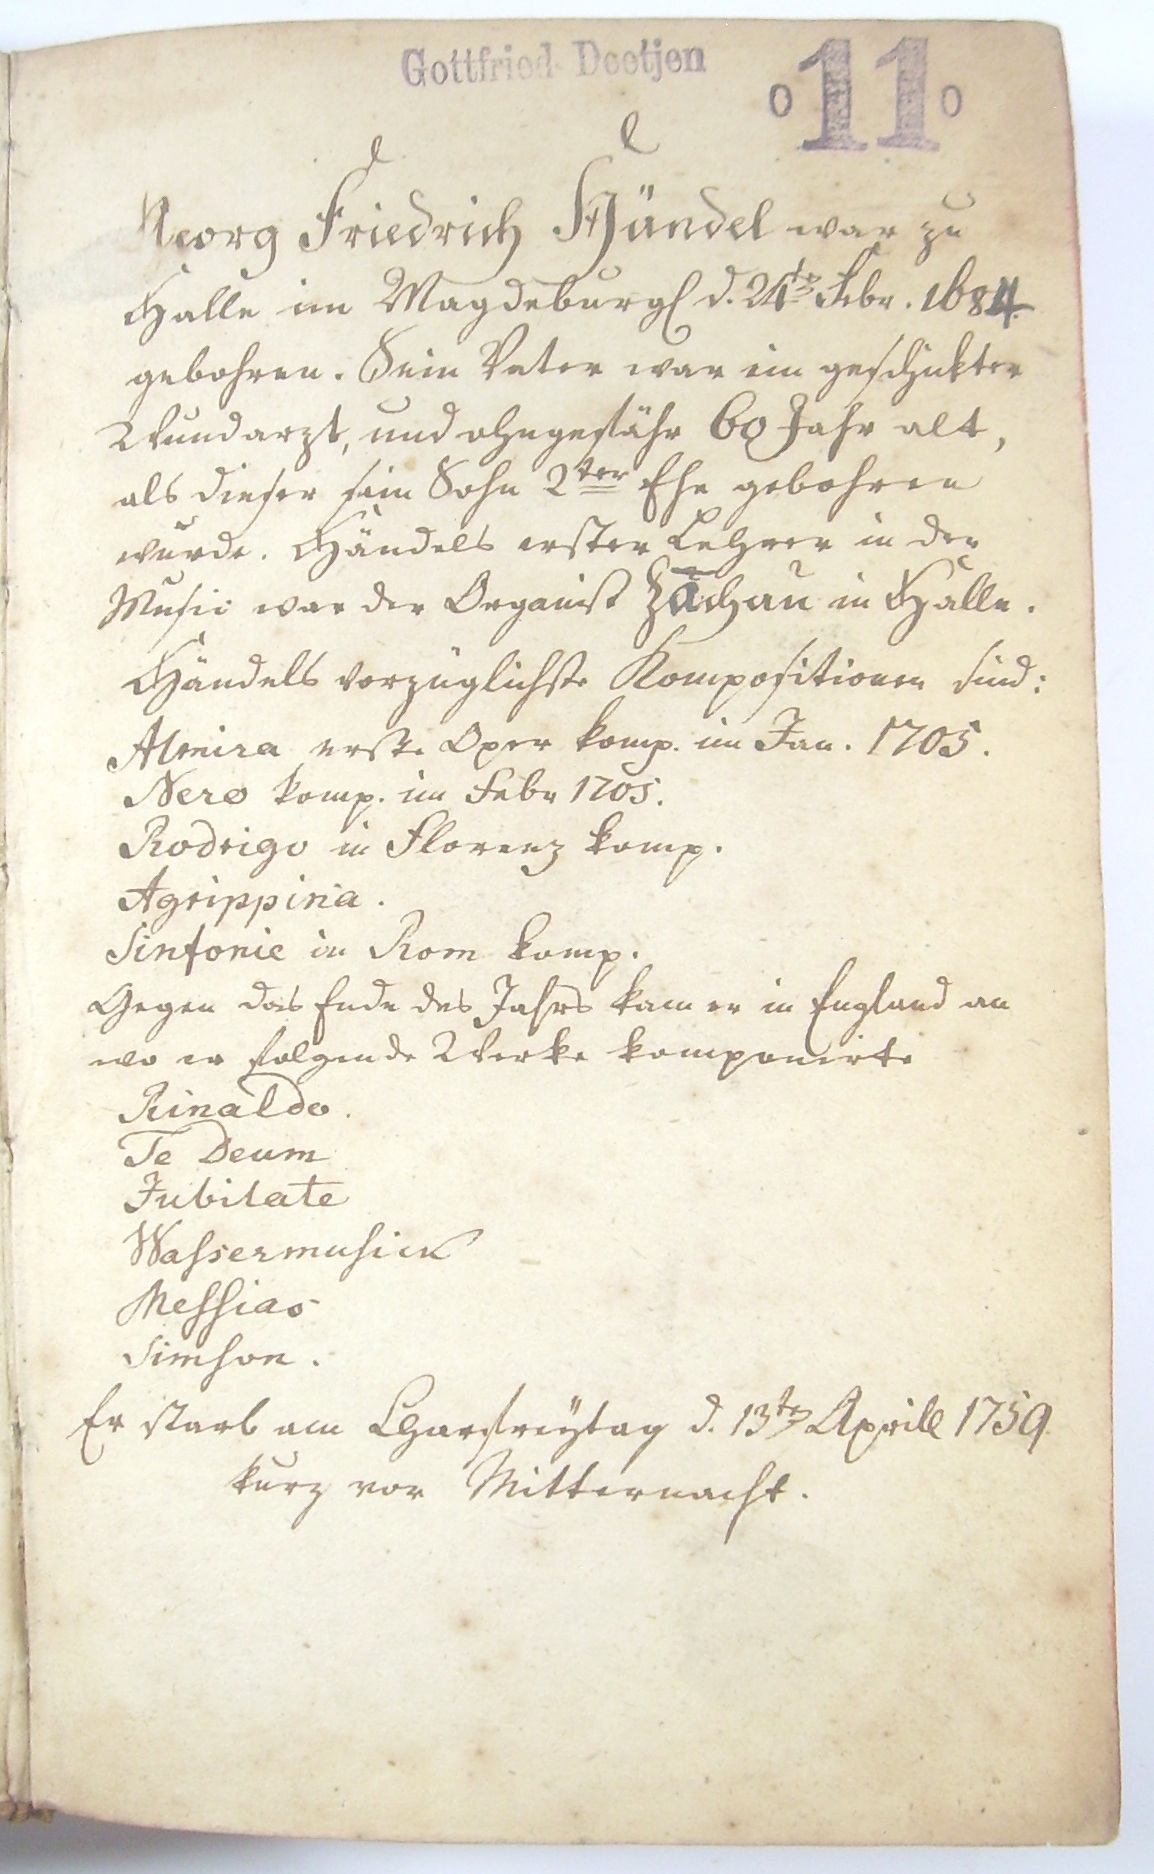 Gottfried Deetjen
o 11 o
Georg Friedrich Händel war zu
Halle im Magdeburg d. 24ten Febr. 1684
gebohren. Sein Vater war ein geschickter
Wundarzt, und ohngefähr 60 Jahr alt,
als dieser sein Sohn 2ter Ehe gebohren
wurde. Händels erster Lehrer in der
Music war der Organist Zachau in Halle.
Händels vorzüglichste Kompositionen sind:
Almira erste Oper komp. im Jan. 1705.
Nero komp. im Febr 1705.
Rodrigo in Florenz komp.
Agrippina.
Sinfonie in Rom komp.
Gegen das Ende des Jahrs kam er in England an
wo er folgende Werke komponirte
Rinaldo.
Te Deum
Jubilate
Wassermusick
Messias
Simson.
Er starb am Charfreÿtag d. 13ten Aprill 1759
kurz vor Mitternacht.